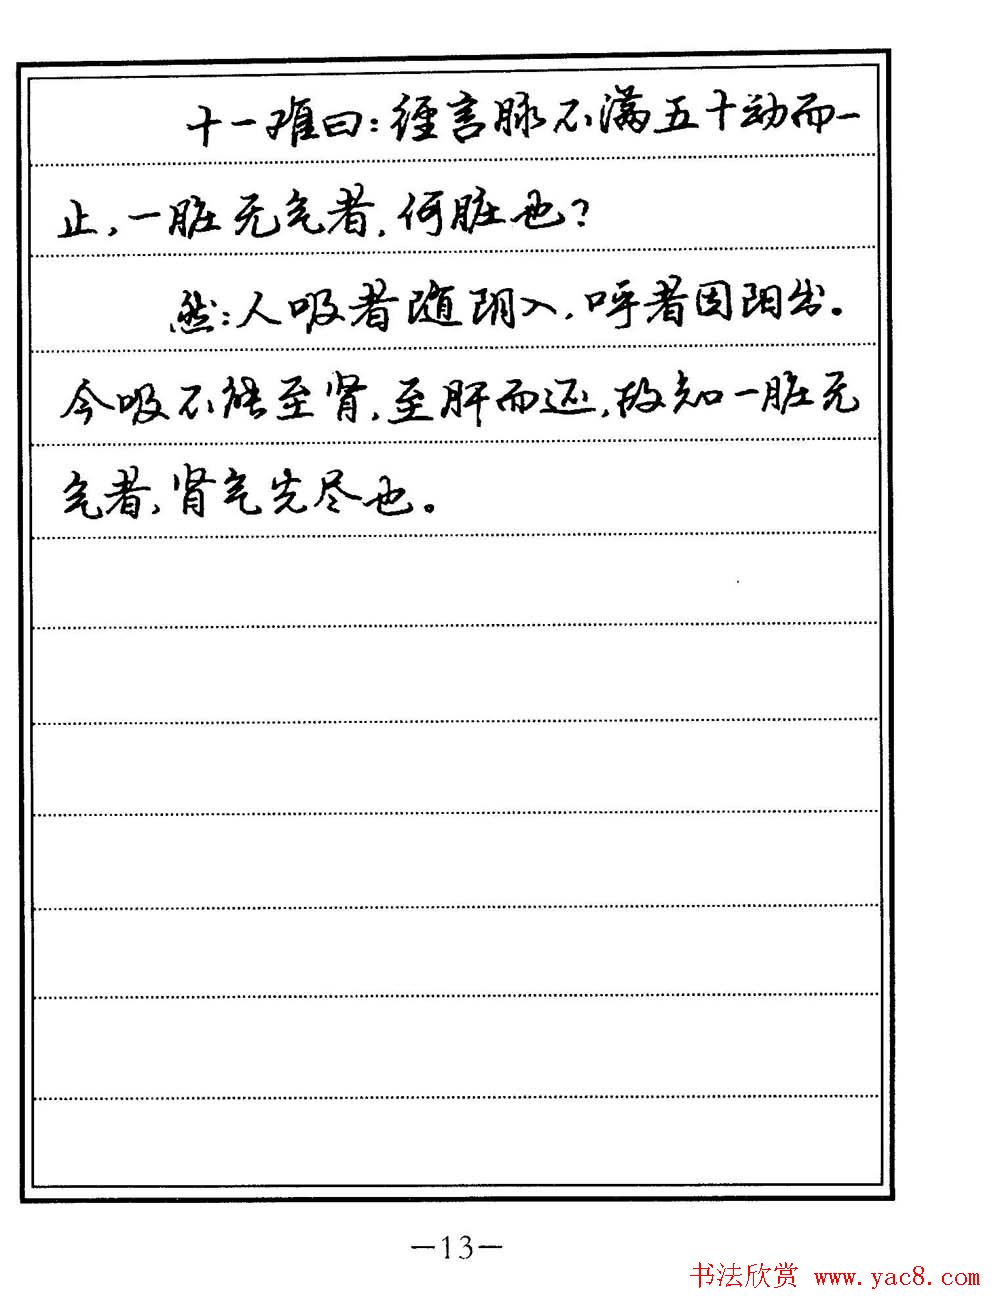 十一难曰：经言脉不满五十动而一
止，一脏无气者，何脏也？
然：人吸者随阴入，呼者因阳出。
今吸不能至肾，至肝而还，故知一脏无
气者，肾气先尽也。
—13—
书法欣赏 www.yac8.com